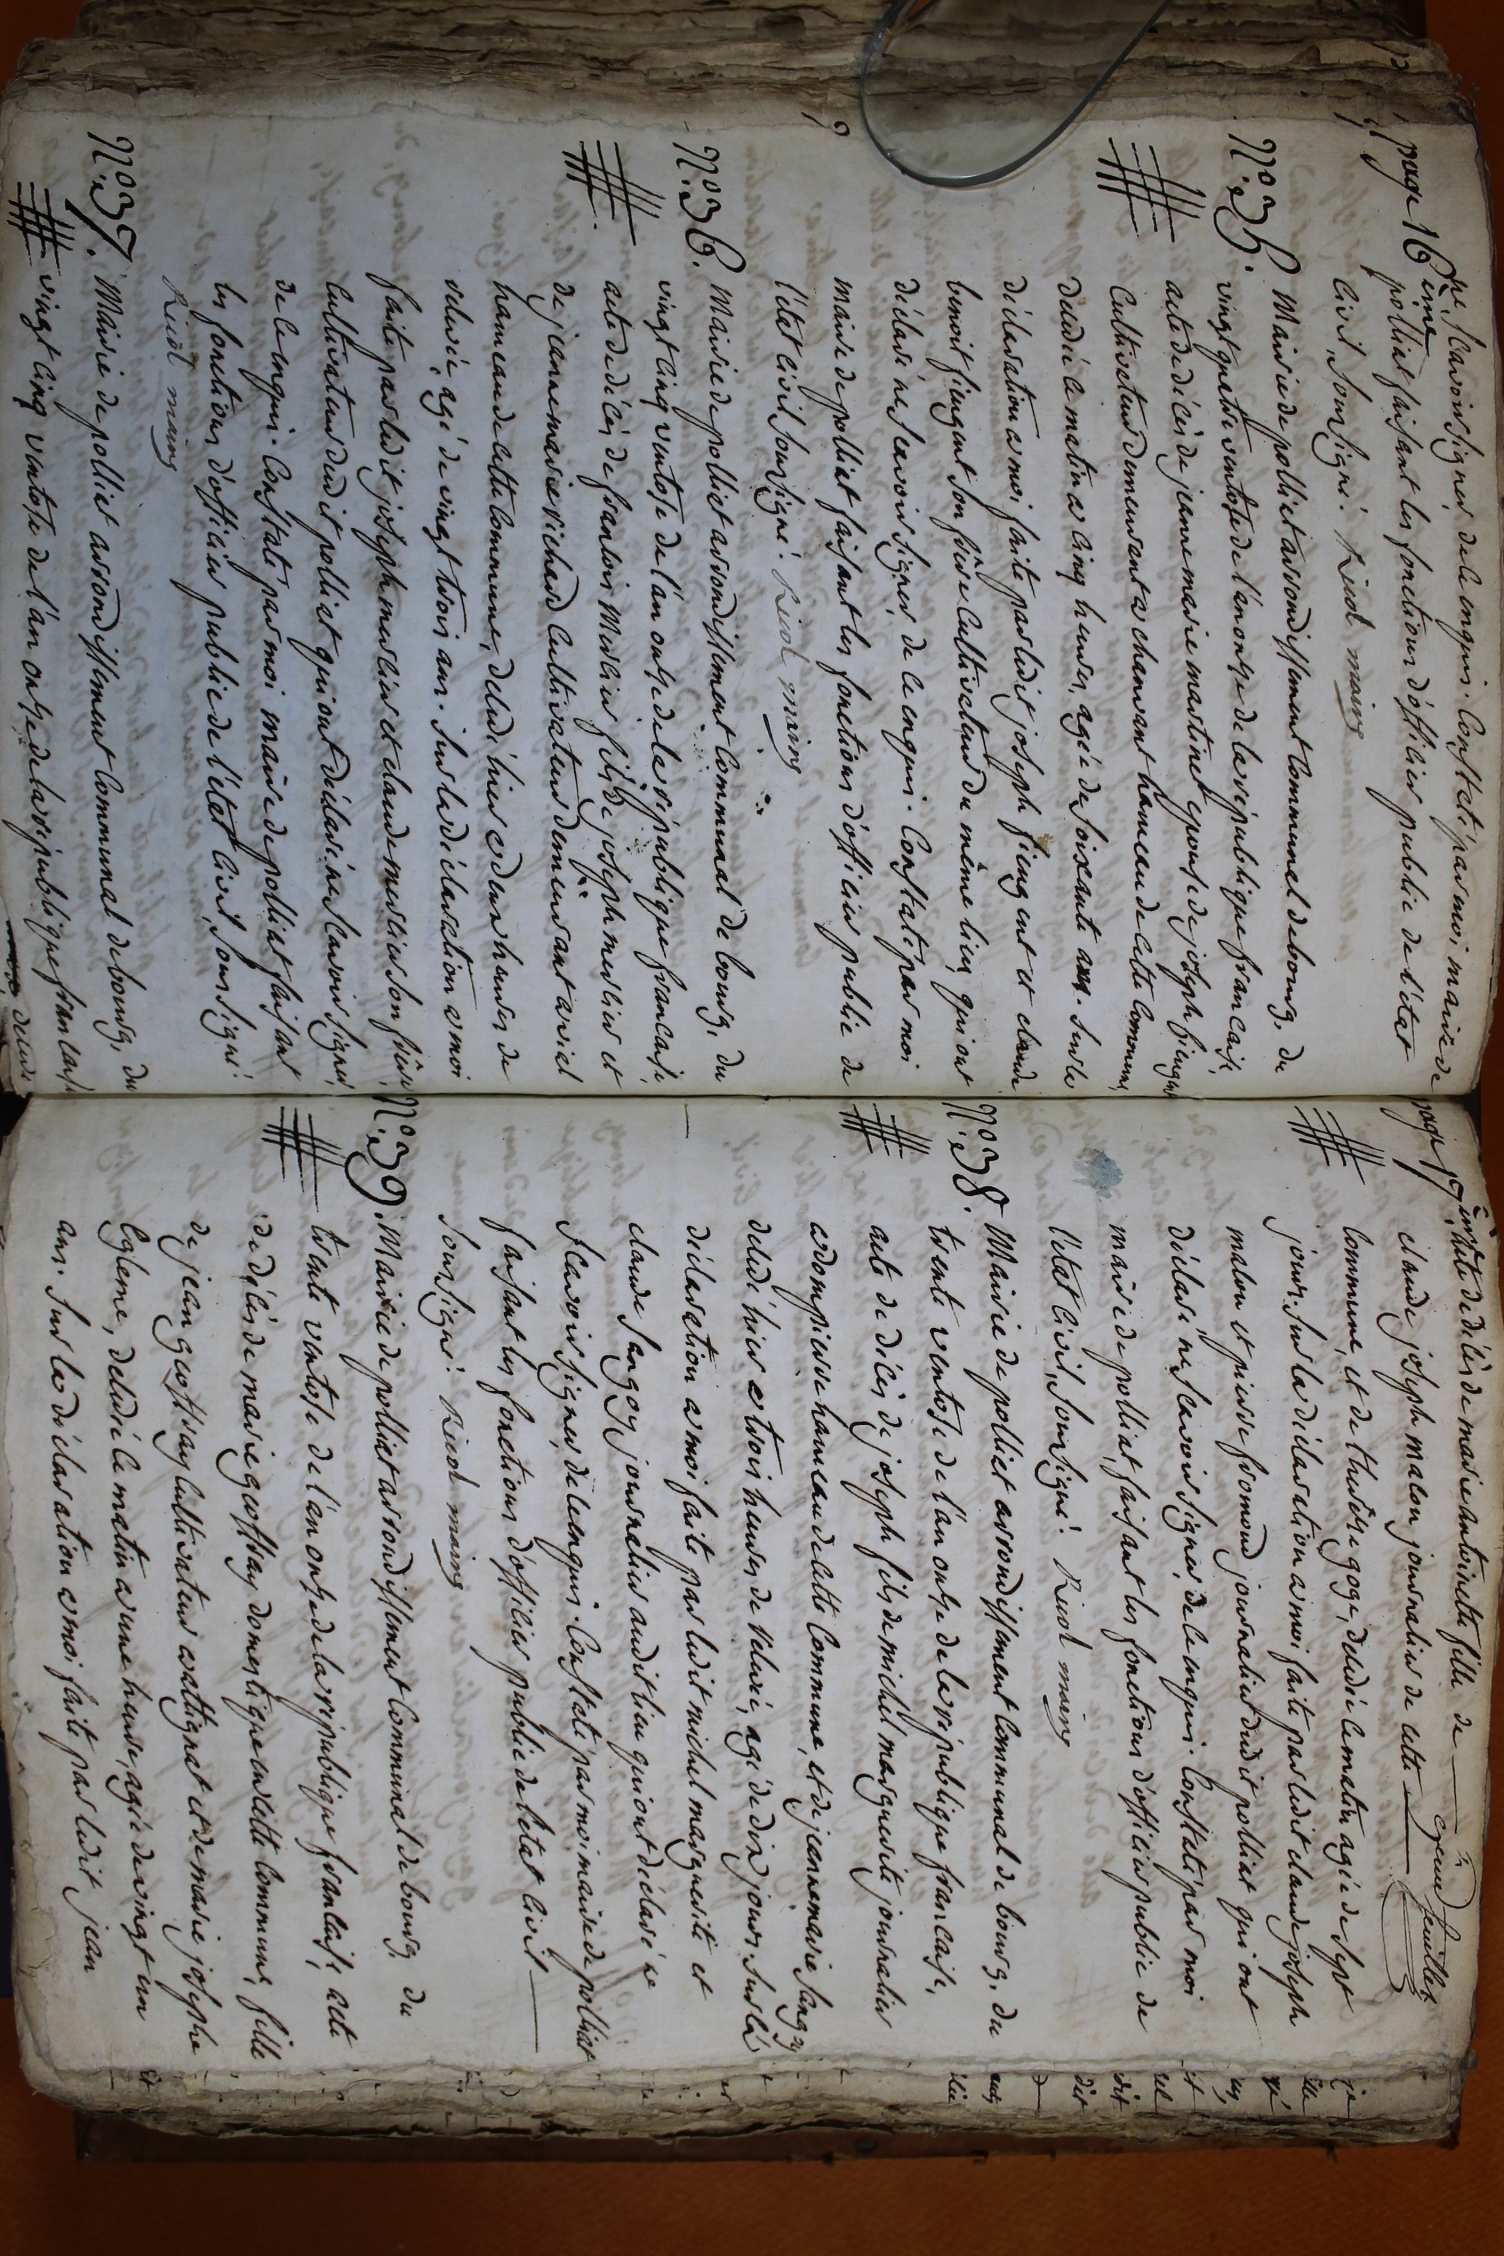 page 16ème
ne scavoir signer de ce enquis. Constaté par moi maire de
polliat faisant les fonctions d'officier public de l'etat
Civil, Soussigné. Ricol maire
N.o 35. Mairie de polliat arrondissement Communal de bourg, du
vingt quatre ventose de l'an onze de la republique francaise,
acte de décès de jeanne marie martinet epouse de joseph
Cultivateur demeurant a hameau de cette Commune,
decedée le matin a cinq heures, agée de soixante ans. Sur la
déclaration a moi faite par ledit joseph et claude
benoit son frère Cultivateur du même lieu, qui ont
déclaré ne scavoir signer, de ce enquis. Constaté par moi
maire de polliat faisant les fonctions d'officier public de
l'état Civil Soussigné. Ricol maire
N.o 36. Mairie de polliat arrondissement Communal de bourg, du
vingt cinq ventose de l'an onze de la republique francaise,
acte de décès de francois Merlier fils de joseph merlier et
de jeanne marie richard Cultivateur demeurant a riel
hameau de cette Commune, decedé hier a deux heures de
relevée, agé de vingt trois ans. Sur la déclaration a moi
faite par ledit joseph merlier et claude merlier son frère
Cultivateur dudit polliat qui ont déclaré ne scavoir signer,
de ce enquis. Constaté par moi maire de polliat faisant
les fonctions d'officier public de l'état Civil, Soussigné.
Ricol maire
N.o 37. Mairie de polliat arrondissement Communal de bourg, du
vingt Cinq ventose de l'an onze de la republique francaise
page 17ème
feuillet
acte de décès de marie antoinette fille de
claude joseph macon journalier de cette
Commune, et de goge, decedée le matin agée de sept
jours. Sur la déclaration a moi faite par ledit claude joseph
macon et pierre fromond journalier dudit polliat qui ont
déclaré ne scavoir signer, de ce enquis. Constaté par moi
maire de polliat, faisant les fonctions d'officier public de
l'état Civil, Soussigné. Ricol maire
N.o 38. Mairie de polliat arrondissement Communal de bourg, du
trente ventose de l'an onze de la republique francaise,
acte de décès de joseph fils de michel marguerite journalier
a dompierre hameau de cette Commune, et de jeanne marie Sangoy
decedé hier a trois heures de relevée, agé de dix jours. Sur la
déclaration a moi faite par ledit michel marguerite et
claude Sangoy journalier audit lieu qui ont déclaré ne
scavoir signer, de ce enquis. Constaté par moi maire de polliat
faisant les fonctions d'officier public de l'etat Civil
Soussigné. Ricol maire
N.o 39. Mairie de polliat arrondissement Communal de bourg, du
trente ventose de l'an onze de la republique francaise, acte
de décès de marie geoffray domestique en cette Commune, fille
de jean geoffray Cultivateur a attignat et de marie josephe
decedée le matin a une heure, agée de vingt un
ans. Sur la déclaration a moi faite par ledit jean